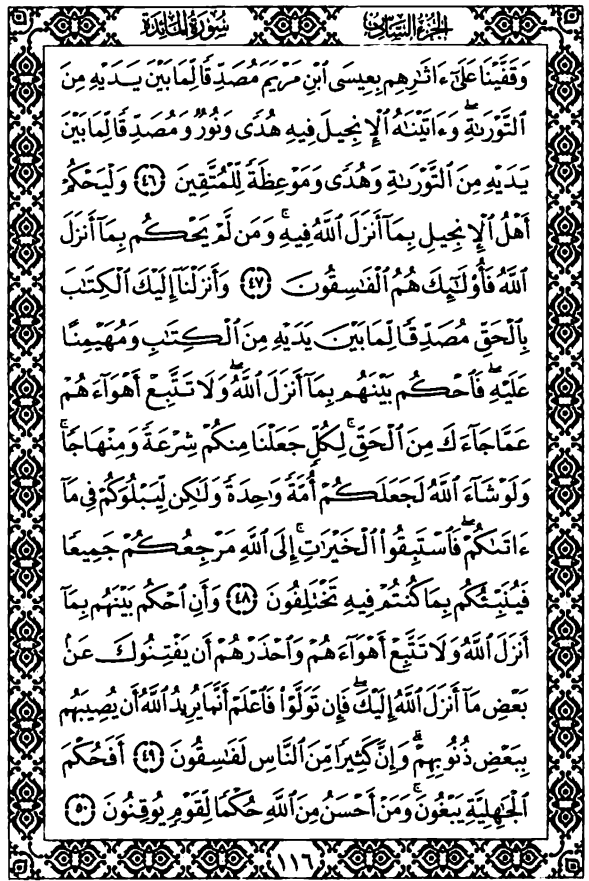 سُورَةُ المَائِدَةِ الجُزْءُ السَّادِسُ
وَقَفَّيْنَا عَلَىٰٓ ءَاثَٰرِهِم بِعِيسَى ٱبْنِ مَرْيَمَ مُصَدِّقًا لِّمَا بَيْنَ يَدَيْهِ مِنَ
ٱلتَّوْرَىٰةِۖ وَءَاتَيْنَٰهُ ٱلْإِنجِيلَ فِيهِ هُدًى وَنُورٌ وَمُصَدِّقًا لِّمَا بَيْنَ
يَدَيْهِ مِنَ ٱلتَّوْرَىٰةِ وَهُدًى وَمَوْعِظَةً لِّلْمُتَّقِينَ ﴿٤٦﴾ وَلْيَحْكُمْ
أَهْلُ ٱلْإِنجِيلِ بِمَآ أَنزَلَ ٱللَّهُ فِيهِۚ وَمَن لَّمْ يَحْكُم بِمَآ أَنزَلَ
ٱللَّهُ فَأُو۟لَٰٓئِكَ هُمُ ٱلْفَٰسِقُونَ ﴿٤٧﴾ وَأَنزَلْنَآ إِلَيْكَ ٱلْكِتَٰبَ
بِٱلْحَقِّ مُصَدِّقًا لِّمَا بَيْنَ يَدَيْهِ مِنَ ٱلْكِتَٰبِ وَمُهَيْمِنًا
عَلَيْهِۖ فَٱحْكُم بَيْنَهُم بِمَآ أَنزَلَ ٱللَّهُۖ وَلَا تَتَّبِعْ أَهْوَآءَهُمْ
عَمَّا جَآءَكَ مِنَ ٱلْحَقِّۚ لِكُلٍّ جَعَلْنَا مِنكُمْ شِرْعَةً وَمِنْهَاجًاۚ
وَلَوْ شَآءَ ٱللَّهُ لَجَعَلَكُمْ أُمَّةً وَٰحِدَةً وَلَٰكِن لِّيَبْلُوَكُمْ فِى مَآ
ءَاتَىٰكُمْۖ فَٱسْتَبِقُوا۟ ٱلْخَيْرَٰتِۚ إِلَى ٱللَّهِ مَرْجِعُكُمْ جَمِيعًا
فَيُنَبِّئُكُم بِمَا كُنتُمْ فِيهِ تَخْتَلِفُونَ ﴿٤٨﴾ وَأَنِ ٱحْكُم بَيْنَهُم بِمَآ
أَنزَلَ ٱللَّهُ وَلَا تَتَّبِعْ أَهْوَآءَهُمْ وَٱحْذَرْهُمْ أَن يَفْتِنُوكَ عَنۢ
بَعْضِ مَآ أَنزَلَ ٱللَّهُ إِلَيْكَۖ فَإِن تَوَلَّوْا۟ فَٱعْلَمْ أَنَّمَا يُرِيدُ ٱللَّهُ أَن يُصِيبَهُم
بِبَعْضِ ذُنُوبِهِمْۗ وَإِنَّ كَثِيرًا مِّنَ ٱلنَّاسِ لَفَٰسِقُونَ ﴿٤٩﴾ أَفَحُكْمَ
ٱلْجَٰهِلِيَّةِ يَبْغُونَۚ وَمَنْ أَحْسَنُ مِنَ ٱللَّهِ حُكْمًا لِّقَوْمٍ يُوقِنُونَ ﴿٥٠﴾
١١٦